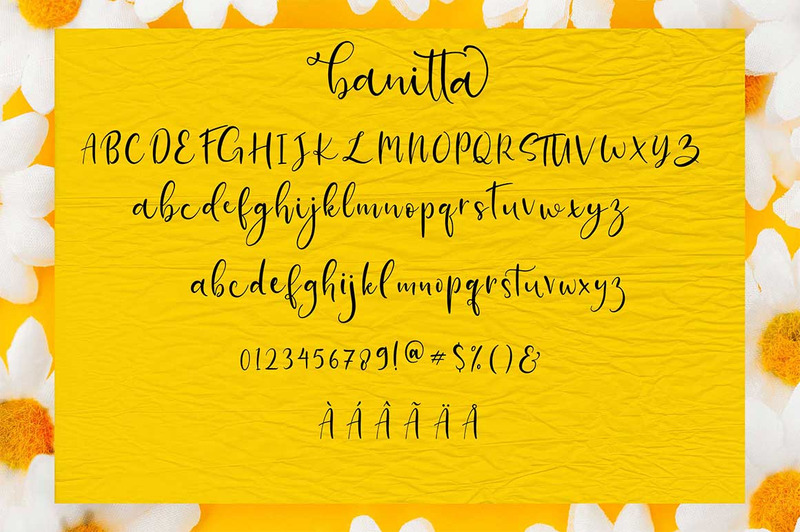 banitta
ABCDEFGHIJKLMNOPQRSTUVWXYZ
abcdefghijklmnopqrstuvwxyz
abcdefghijklmnopqrstuvwxyz
0123456789!@#$%()&
ÀÁÂÃÄÅ